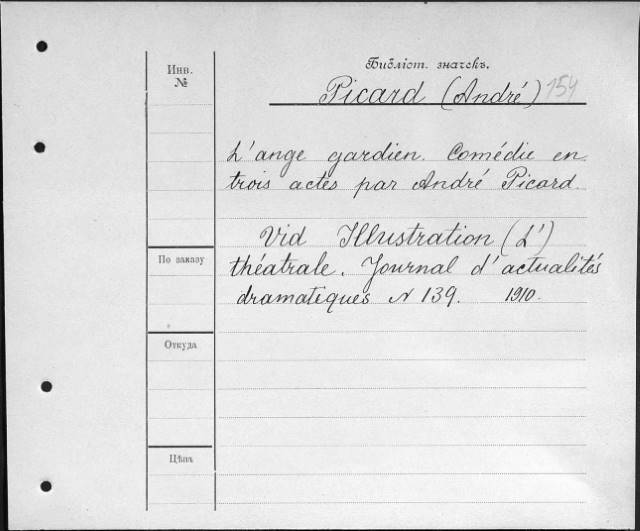 Инв.
№
Библіот. значекъ.
Picard (André) 154
L'ange gardien. Comédie en
trois actes par André Picard.
Vid Illustration (L')
théatrale. Journal d'actualités
По заказу
dramateques N 139. 1910.
Откуда
Цѣна